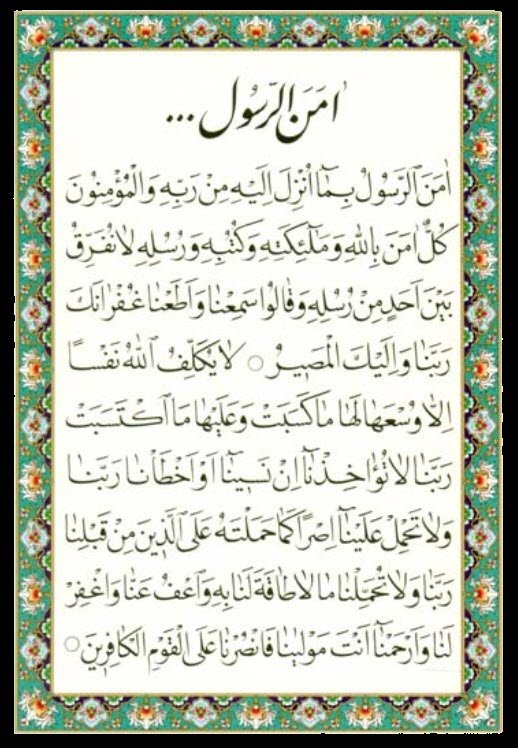 اٰمَنَ الرَّسُولُ ...
اٰمَنَ الرَّسُولُ بِمَٓا اُنْزِلَ اِلَيْهِ مِنْ رَبِّهِ وَالْمُؤْمِنُونَ
كُلٌّ اٰمَنَ بِاللّٰهِ وَمَلٰٓئِكَتِهِ وَكُتُبِهِ وَرُسُلِهِ لَا نُفَرِّقُ
بَيْنَ اَحَدٍ مِنْ رُسُلِهِ وَقَالُوا سَمِعْنَا وَاَطَعْنَا غُفْرَانَكَ
رَبَّنَا وَاِلَيْكَ الْمَصِيرُ ○ لَا يُكَلِّفُ اللّٰهُ نَفْسًا
اِلَّا وُسْعَهَا لَهَا مَا كَسَبَتْ وَعَلَيْهَا مَا اكْتَسَبَتْ
رَبَّنَا لَا تُؤَاخِذْنَٓا اِنْ نَسِينَٓا اَوْ اَخْطَاْنَا رَبَّنَا
وَلَا تَحْمِلْ عَلَيْنَٓا اِصْرًا كَمَا حَمَلْتَهُ عَلَى الَّذِينَ مِنْ قَبْلِنَا
رَبَّنَا وَلَا تُحَمِّلْنَا مَا لَا طَاقَةَ لَنَا بِهِ وَاعْفُ عَنَّا وَاغْفِرْ
لَنَا وَارْحَمْنَٓا اَنْتَ مَوْلٰينَا فَانْصُرْنَا عَلَى الْقَوْمِ الْكَافِرِينَ ○